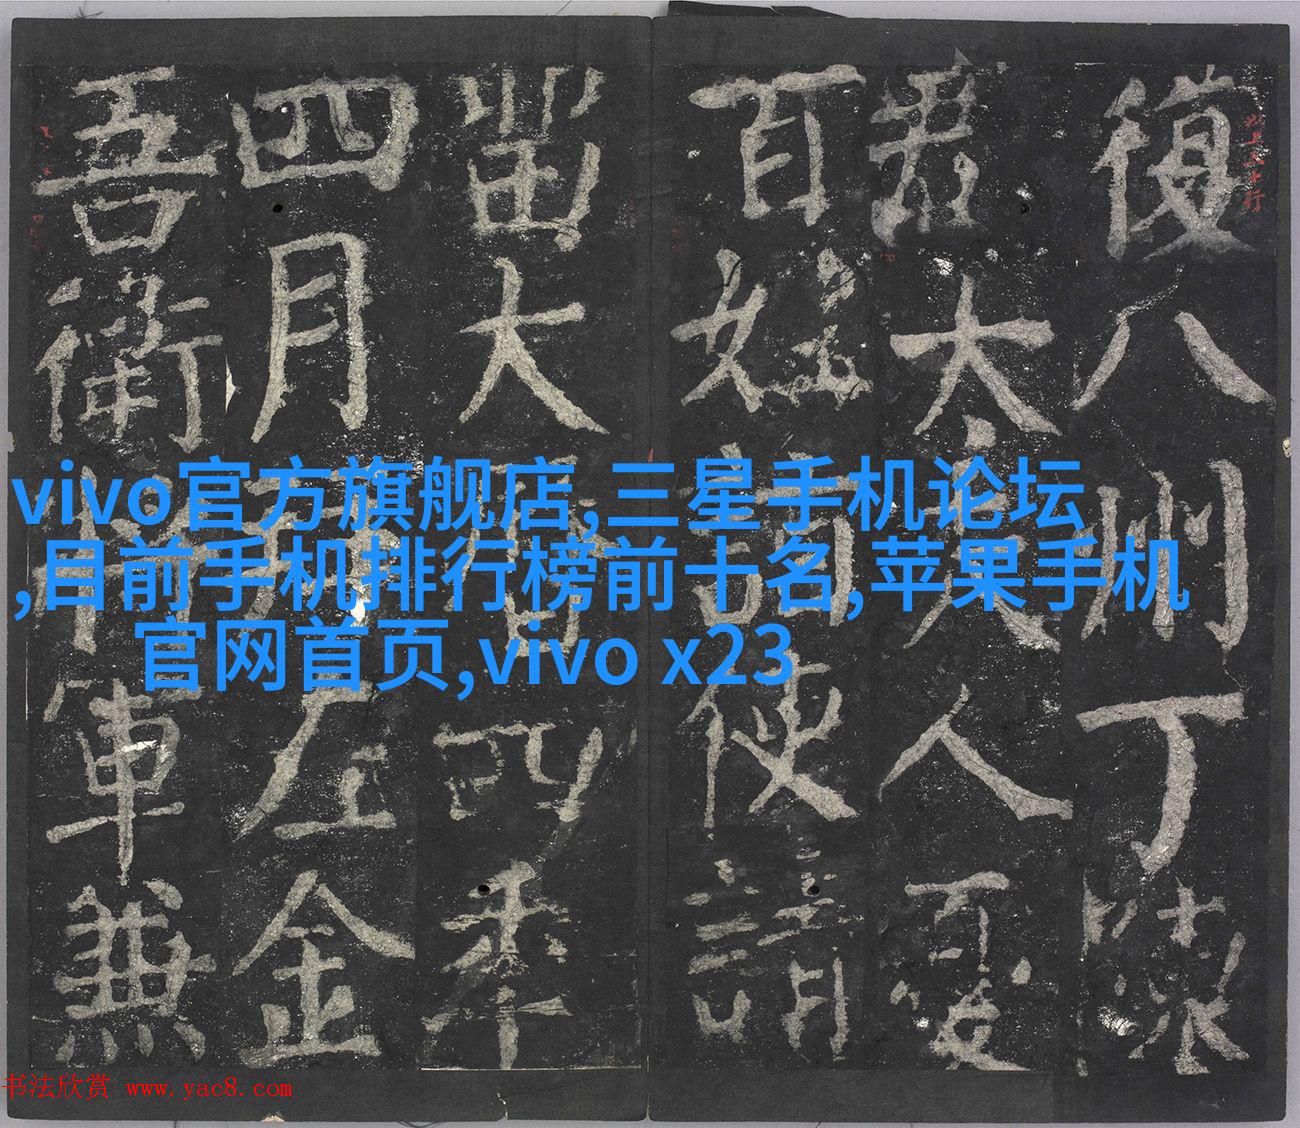 復八州丁
太夫人憂
百姓詣使請
留大曆四年
四月左金
吾衛將軍兼
vivo官方旗舰店,三星手机论坛
,目前手机排行榜前十名,苹果手机
官网首页,vivo x23
书法欣赏 www.yac8.com